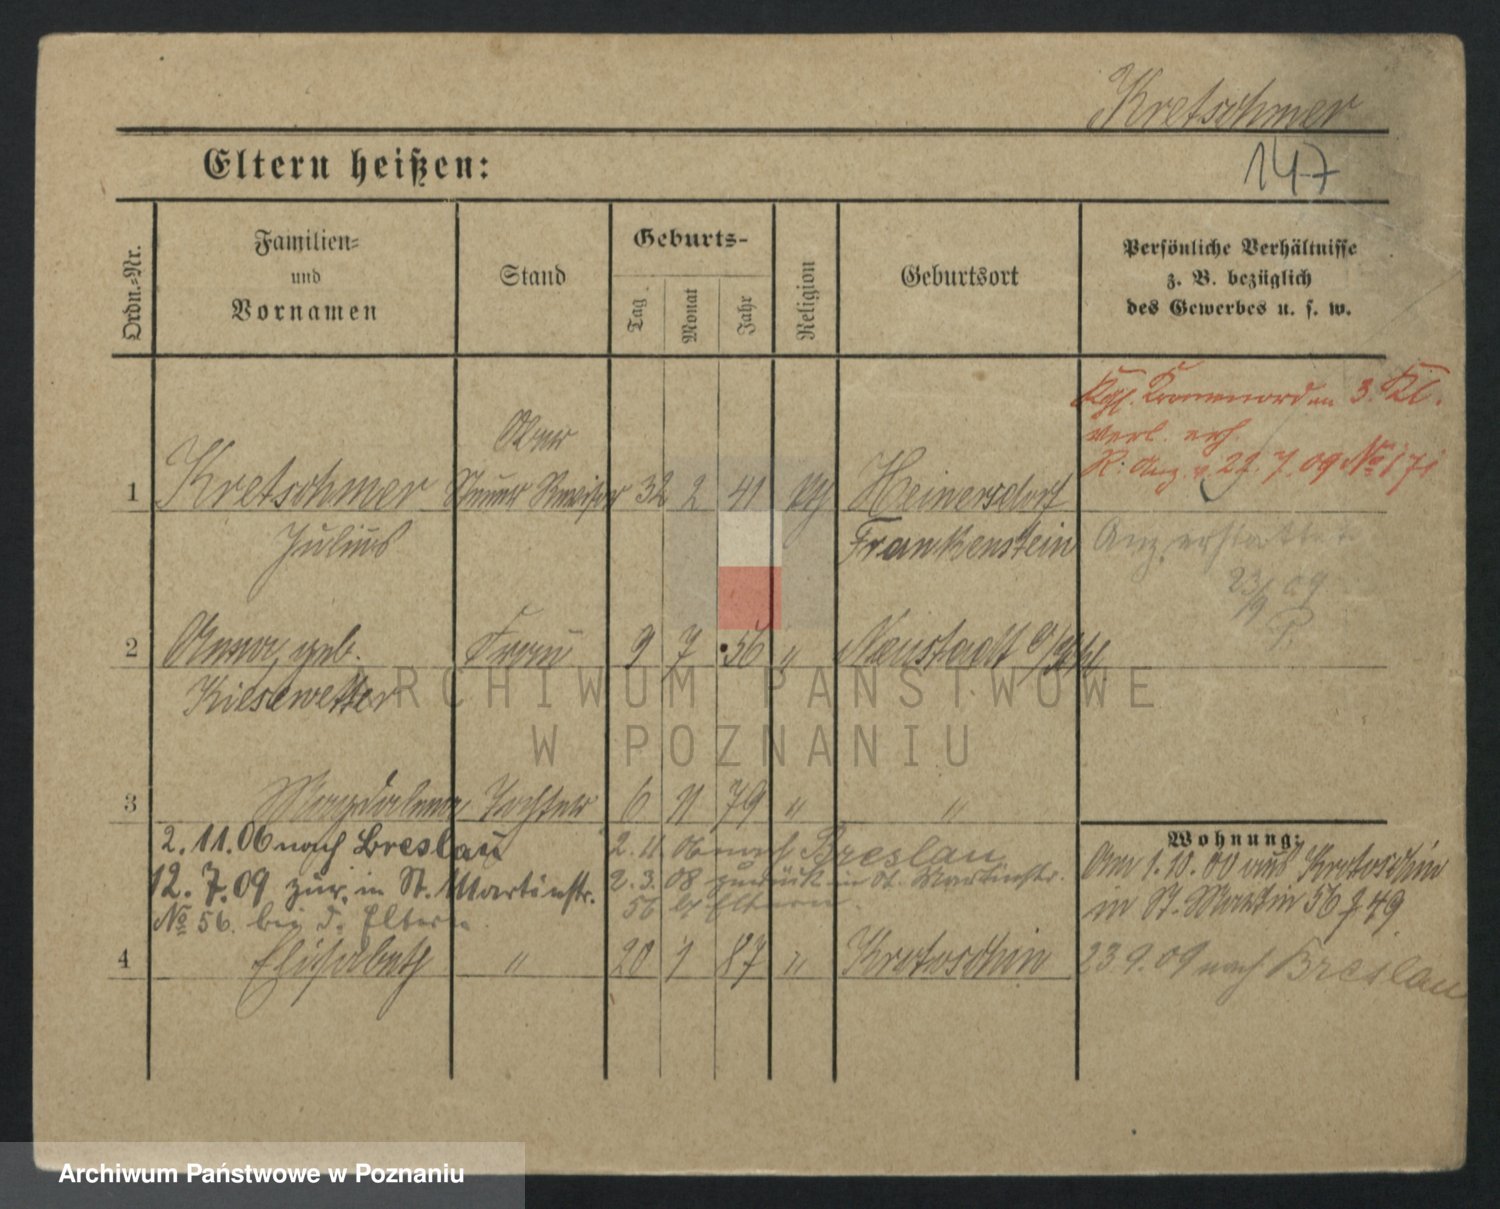 Kretschmer
Eltern heißen:
147
Ordn.-Nr.
Familien-
und
Vornamen
Stand
Geburts-
Tag.
Monat
Jahr
Religion
Geburtsort
Persönliche Verhältnisse
z. B. bezüglich
des Gewerbes u. s. w.
Kgl. Kronenorden 3. Kl.
verl. erh.
R. Anz. v. 22. 7. 09 No 171
Ober
1 Kretschmer Steuer Revisor 2 41 Heinersdorf
Julius Frankenstein
Anz. erstattet
23/9 09
P.
2 Anna geb. Frau 9 7 56 " Neustadt
Kiesewetter
ARCHIWUM PAŃSTWOWE
W POZNANIU
3 Magdalena Tochter 6 11 79 " "
2. 11. 06 nach Breslau
12. 7. 09 zur. in St. Martinstr.
No 56. bei d. Eltern
2. 11. 06 nach Breslau
2. 3. 08 zurück in St. Martinstr.
56 b. Eltern.
Wohnung:
Am 1. 10. 00 aus Krotoschin
in St. Martin 56
4 Elisabeth " 20 1 87 " Krotoschin
23 9. 09 nach Breslau
Archiwum Państwowe w Poznaniu